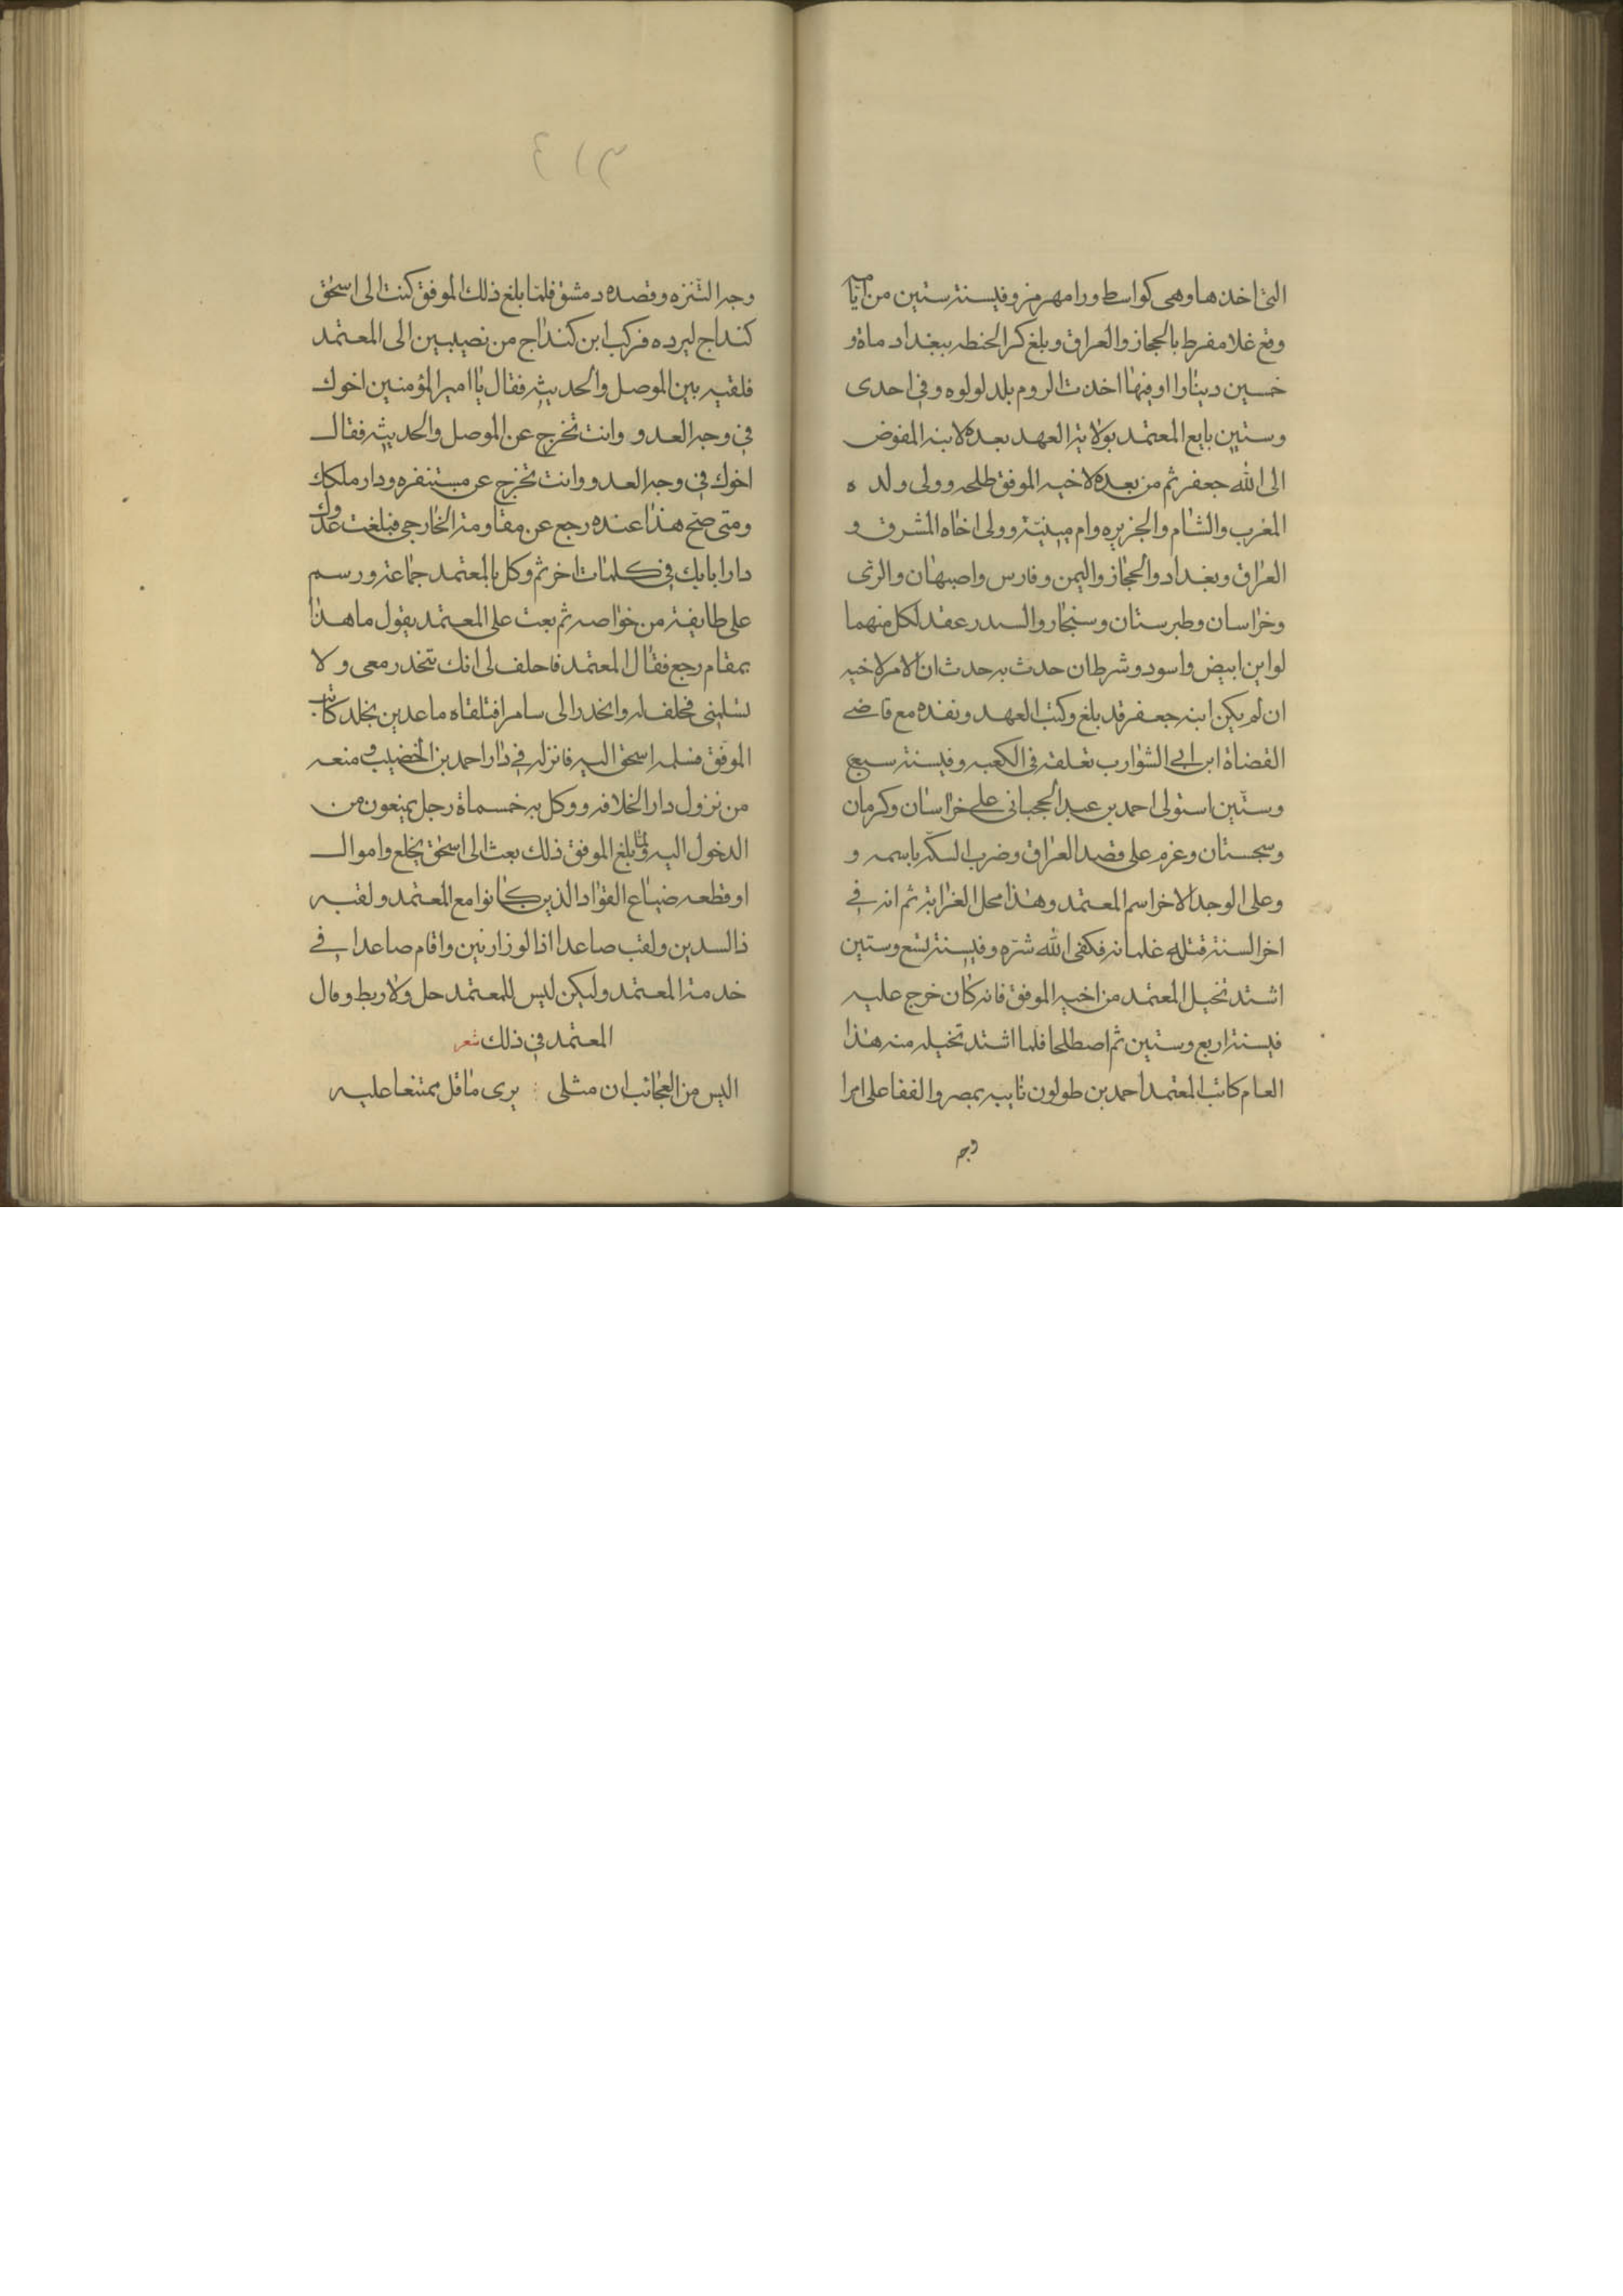 التى اخذها وهى كواسط ورامهرمز وفيسنة ستين من ايامه
وقع غلا مفرط بالحجاز والعراق وبلغ كر الحنطه ببغداد ماة و
خمسين دينارا اوفيها اخذت الروم بلد لولوه وفي احدى
وستين بايع المعتمد بولاية العهد بعده لابنه المفوض
الى الله جعفر ثم من بعده لاخيه الموفق طلحه وولى ولده
المغرب والشام والجزيره وارمينيّة وولى اخاه المشرق و
العراق وبغداد والحجاز واليمن وفارس واصبهان والرى
وخراسان وطبرستان وسنجار والسدر عقد لكل منهما
لواين ابيض واسود وشرط ان حدث به حدث ان الامر لاخيه
ان لم يكن ابنه جعفر قد بلغ وكتب العهد ونفذه مع قاضى
القضاة ابن ابي الشوارب تعلقه فى الكعبه وفيسنة سبع
وستّين استولى احمد بن عبد الحجبانى على خراسان وكرمان
وسجستان وعزم على قصد العراق وضرب السكّه باسمه و
وعلى الوجه الاخر اسم المعتمد وهذا محل الغرابة ثم انه في
اخر السنة قتله غلمانه فكفى الله شرّه وفيسنة تسع وستين
اشتد تخيل المعتمد من اخيه الموفق فانه كان خرج عليه
فيسنة اربع وستين ثم اصطلحا فلما اشتد تخيله منه هذا
العام كاتب المعتمد احمد بن طولون نايبه بمصر والفقا على امرا
وجه
٣١٤
وجه التنزه وقصده دمشق فلمّا بلغ ذلك الموفق كتب الى اسحق
كنداج ليرده فركب ابن كنداج من نصيبين الى المعتمد
فلقيه بين الموصل والحديثه فقال يا امير المؤمنين اخوك
في وجه العدو وانت تخرج عن الموصل والحديثه فقال
اخوك في وجه العدو وانت تخرج عن مستنفره ودار ملكك
ومتى صح هذا عنده رجع عن مقاومة الخارجي فبلغت عدوك
دار ابابك في كلمات اخر ثم وكل بالمعتمد جماعة ورسم
على طايفة من خواصه ثم بعث على المعتمد يقول ما هذا
بمقام رجع فقال المعتمد فاحلف لى انك تنحدر معى ولا
تسلمنى فحلف له وانحدر الى سامرا فتلقاه ماعد بن يخلد كاتب
الموفق فسلمه اسحق اليه فانزله في دار احمد بن الخضيب ومنعه
من نزول دار الخلافه ووكل به خمسماة رجل يمنعون من
الدخول اليه ولمّا بلغ الموفق ذلك بعث الى اسحق بخلع واموال
اوقطعه ضياع القواد الذين كانوا مع المعتمد ولقبه
ذا السدين ولقب صاعدا اذا لوزارتين واقام صاعدا في
خدمة المعتمد وليكن ليس للمعتمد حل ولا ربط وقال
المعتمد في ذلك شعر
اليس من العجائب ان مثلى : يرى ما قل ممتنعا عليه